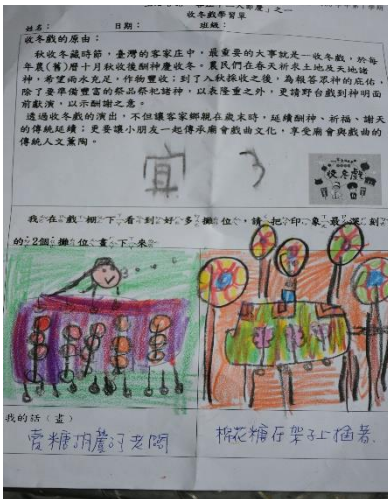 收冬戲學習單
姓名： 日期： 班級：
收冬戲的原由：
秋收冬藏時節，臺灣的客家庄中，最重要的大事就是—收冬戲，於每
年農(舊)曆十月秋收後酬神慶收冬。農民們在春天祈求土地及天地諸
神，希望雨水充足，作物豐收；到了入秋採收之後，為報答眾神的庇佑，
除了要準備豐富的祭品祭祀諸神，以表隆重之外，更請野台戲到神明面
前獻演，以示酬謝之意。
透過收冬戲的演出，不但讓客家鄉親在歲末時，延續酬神、祈福、謝天
的傳統延續；更要讓小朋友一起傳承廟會戲曲文化，享受廟會與戲曲的
傳統人文薰陶。
宜 3
收冬戲
我在戲棚下看到好多攤位，請把印象最深刻
的2個攤位畫下來
我的話（畫）
賣糖葫蘆的老闆
棉花糖在架子上插著.